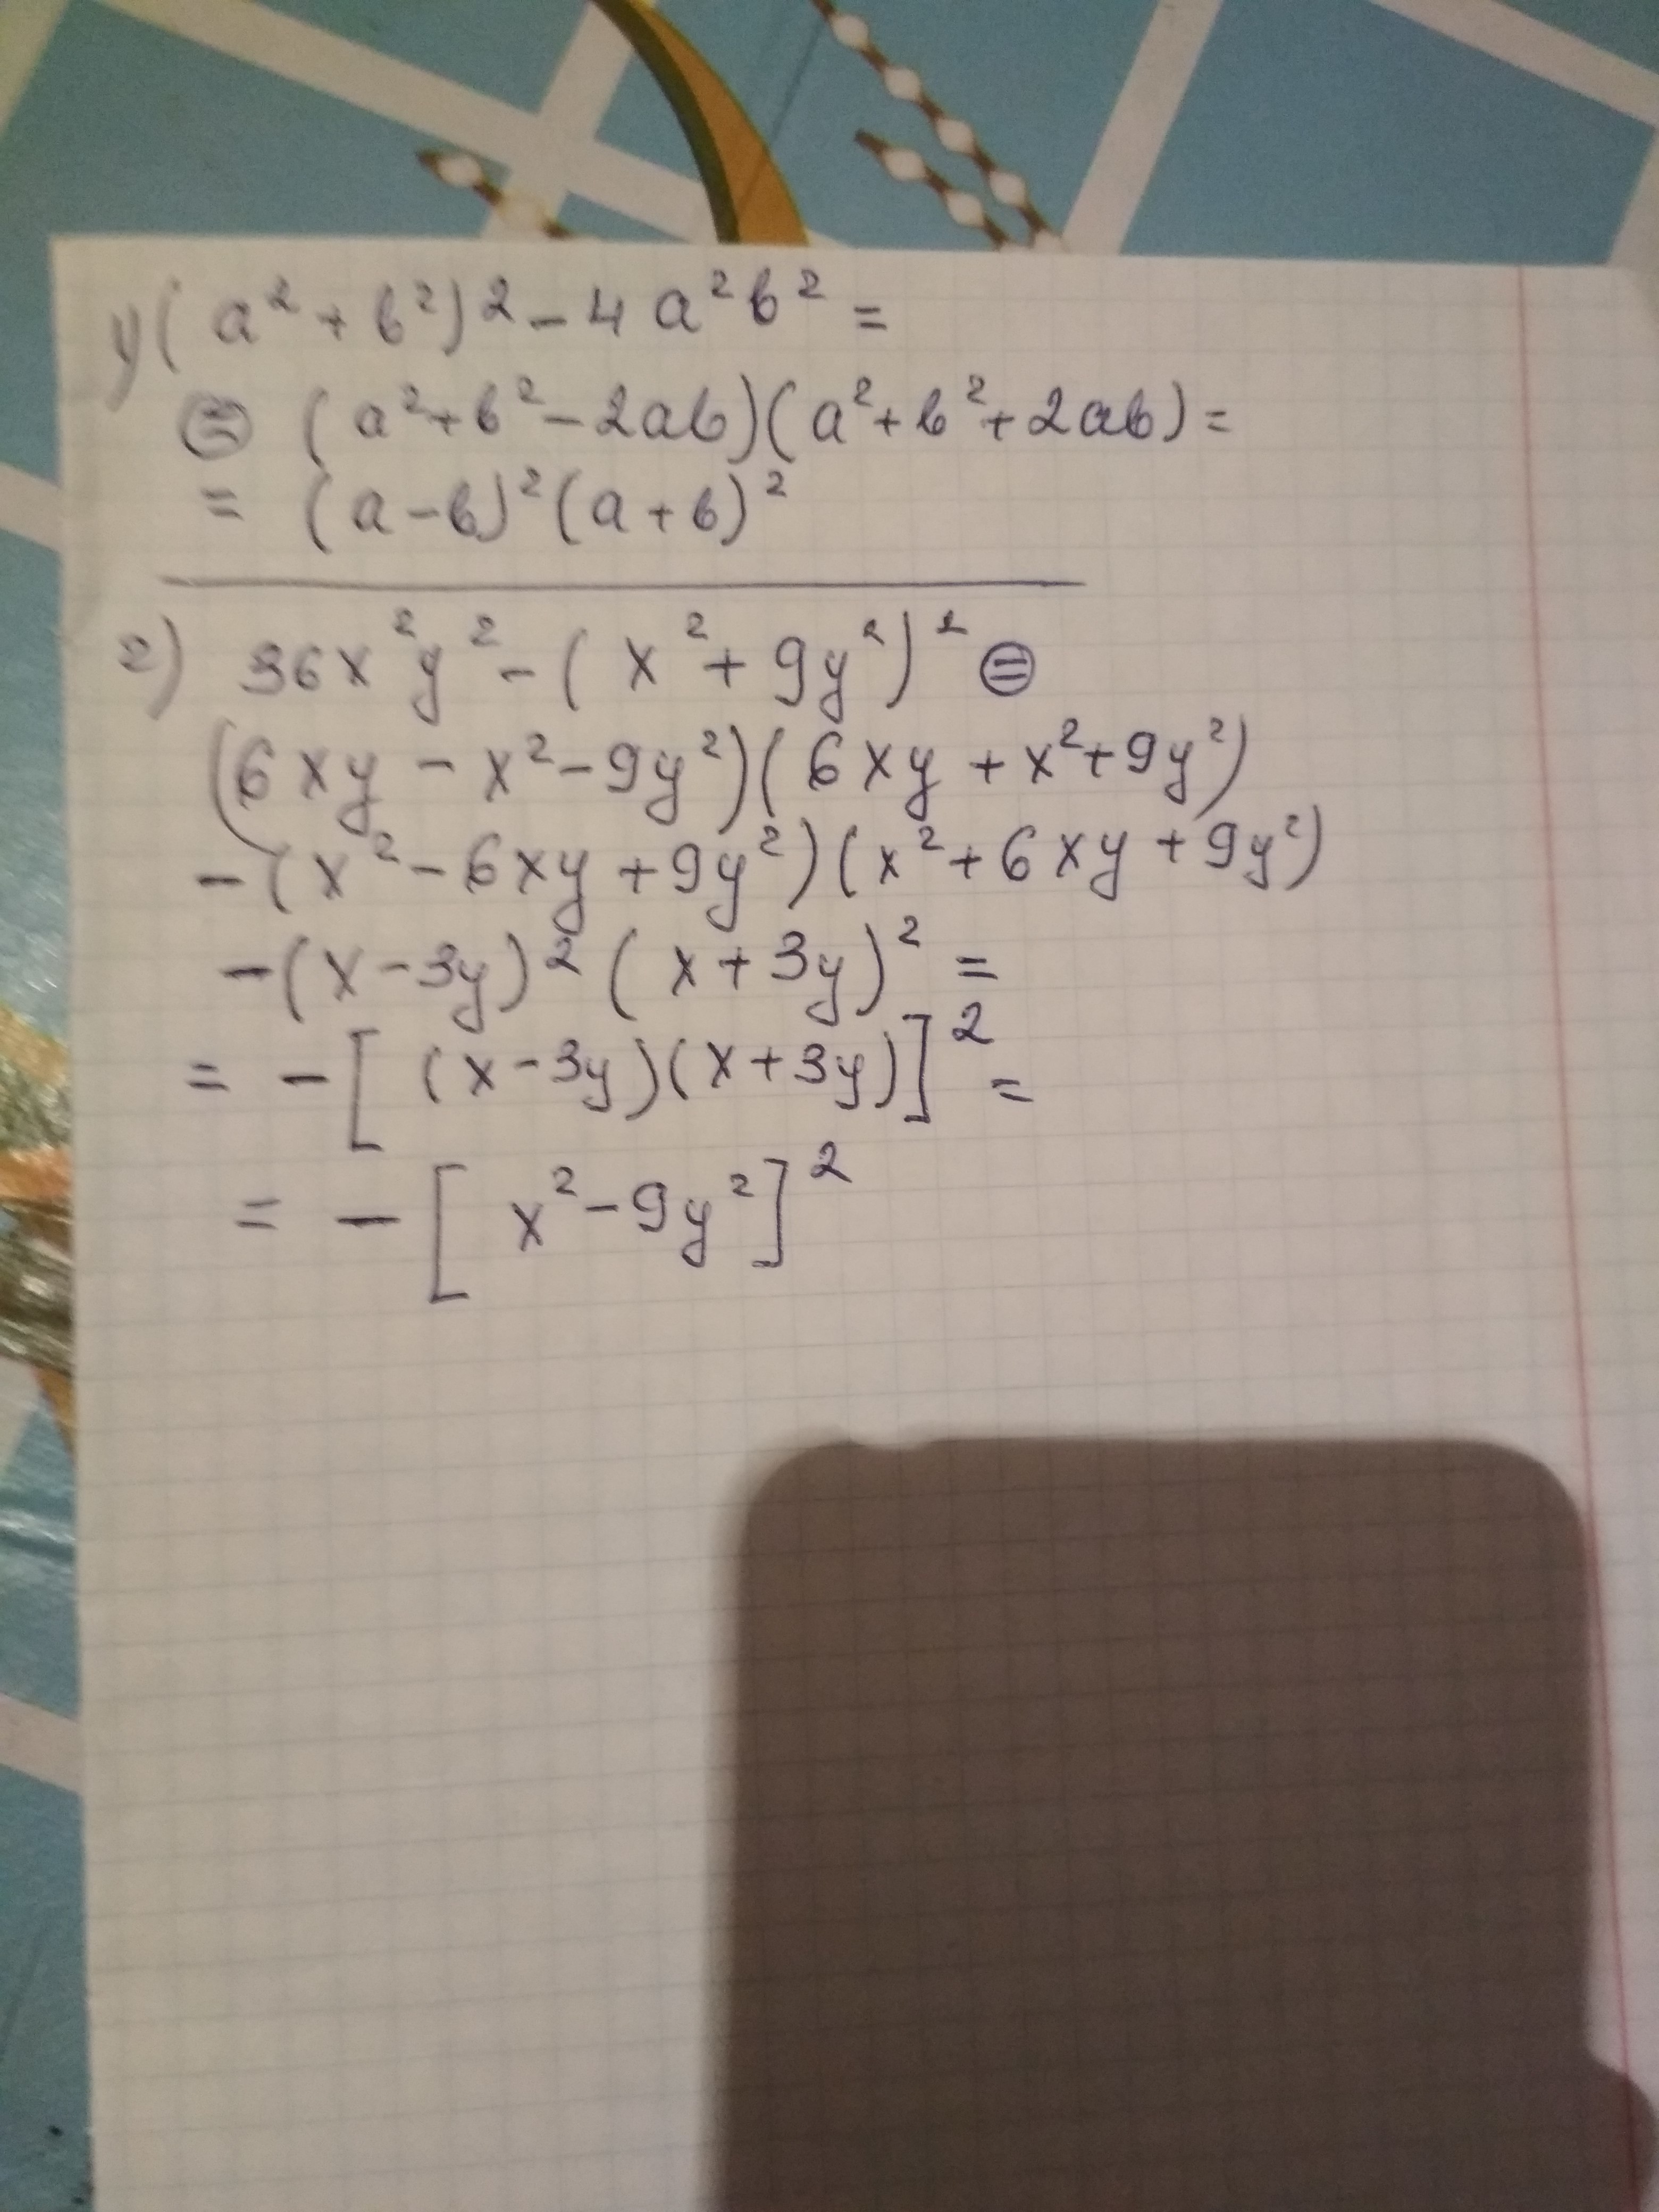 1) (a²+b²)²-4a²b²=
= (a²+b²-2ab)(a²+b²+2ab)=
= (a-b)²(a+b)²
2) 36x²y²-(x²+9y²)² =
(6xy-x²-9y²)(6xy+x²+9y²)
-(x²-6xy+9y²)(x²+6xy+9y²)
-(x-3y)²(x+3y)²=
= -[(x-3y)(x+3y)]²=
= -[x²-9y²]²